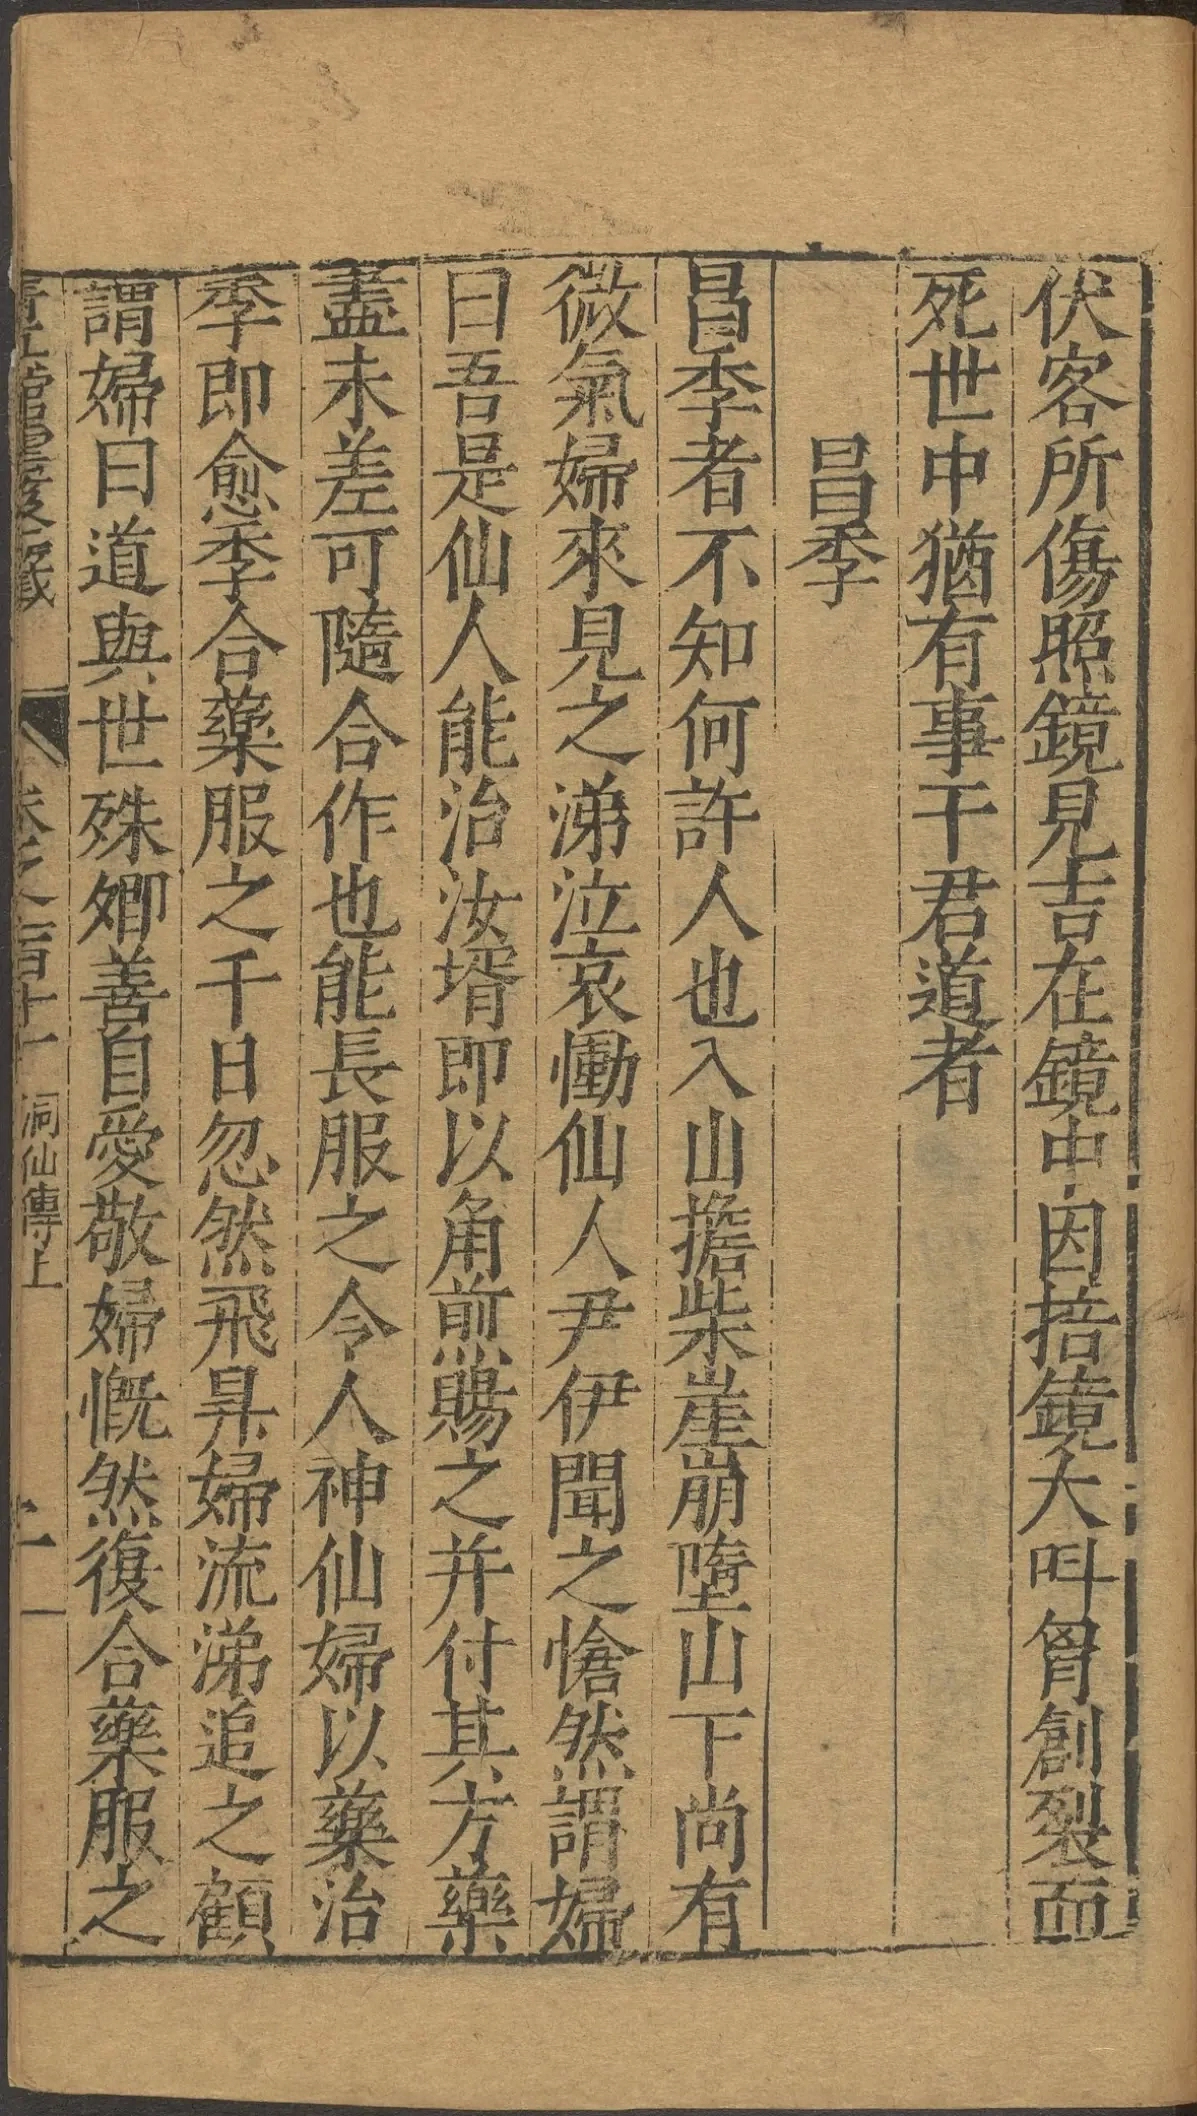 伏客所傷照鏡見吉在鏡中因掊鏡大呌胷創裂而
死世中猶有事干君道者
昌季
昌季者不知何許人也入山擔柴崖崩墮山下尚有
微氣婦來見之涕泣哀慟仙人尹伊聞之愴然謂婦
曰吾是仙人能治汝壻即以角煎賜之并付其方藥
盡未差可隨合作也能長服之令人神仙婦以藥治
季即愈季合藥服之千日忽然飛昇婦流涕追之顧
謂婦曰道與世殊卿善自愛敬婦慨然復合藥服之
卷之一百十一 洞仙傳上